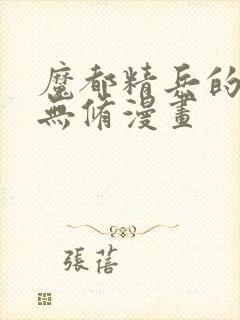 魔都精兵的
無脩漫畫
張蓓